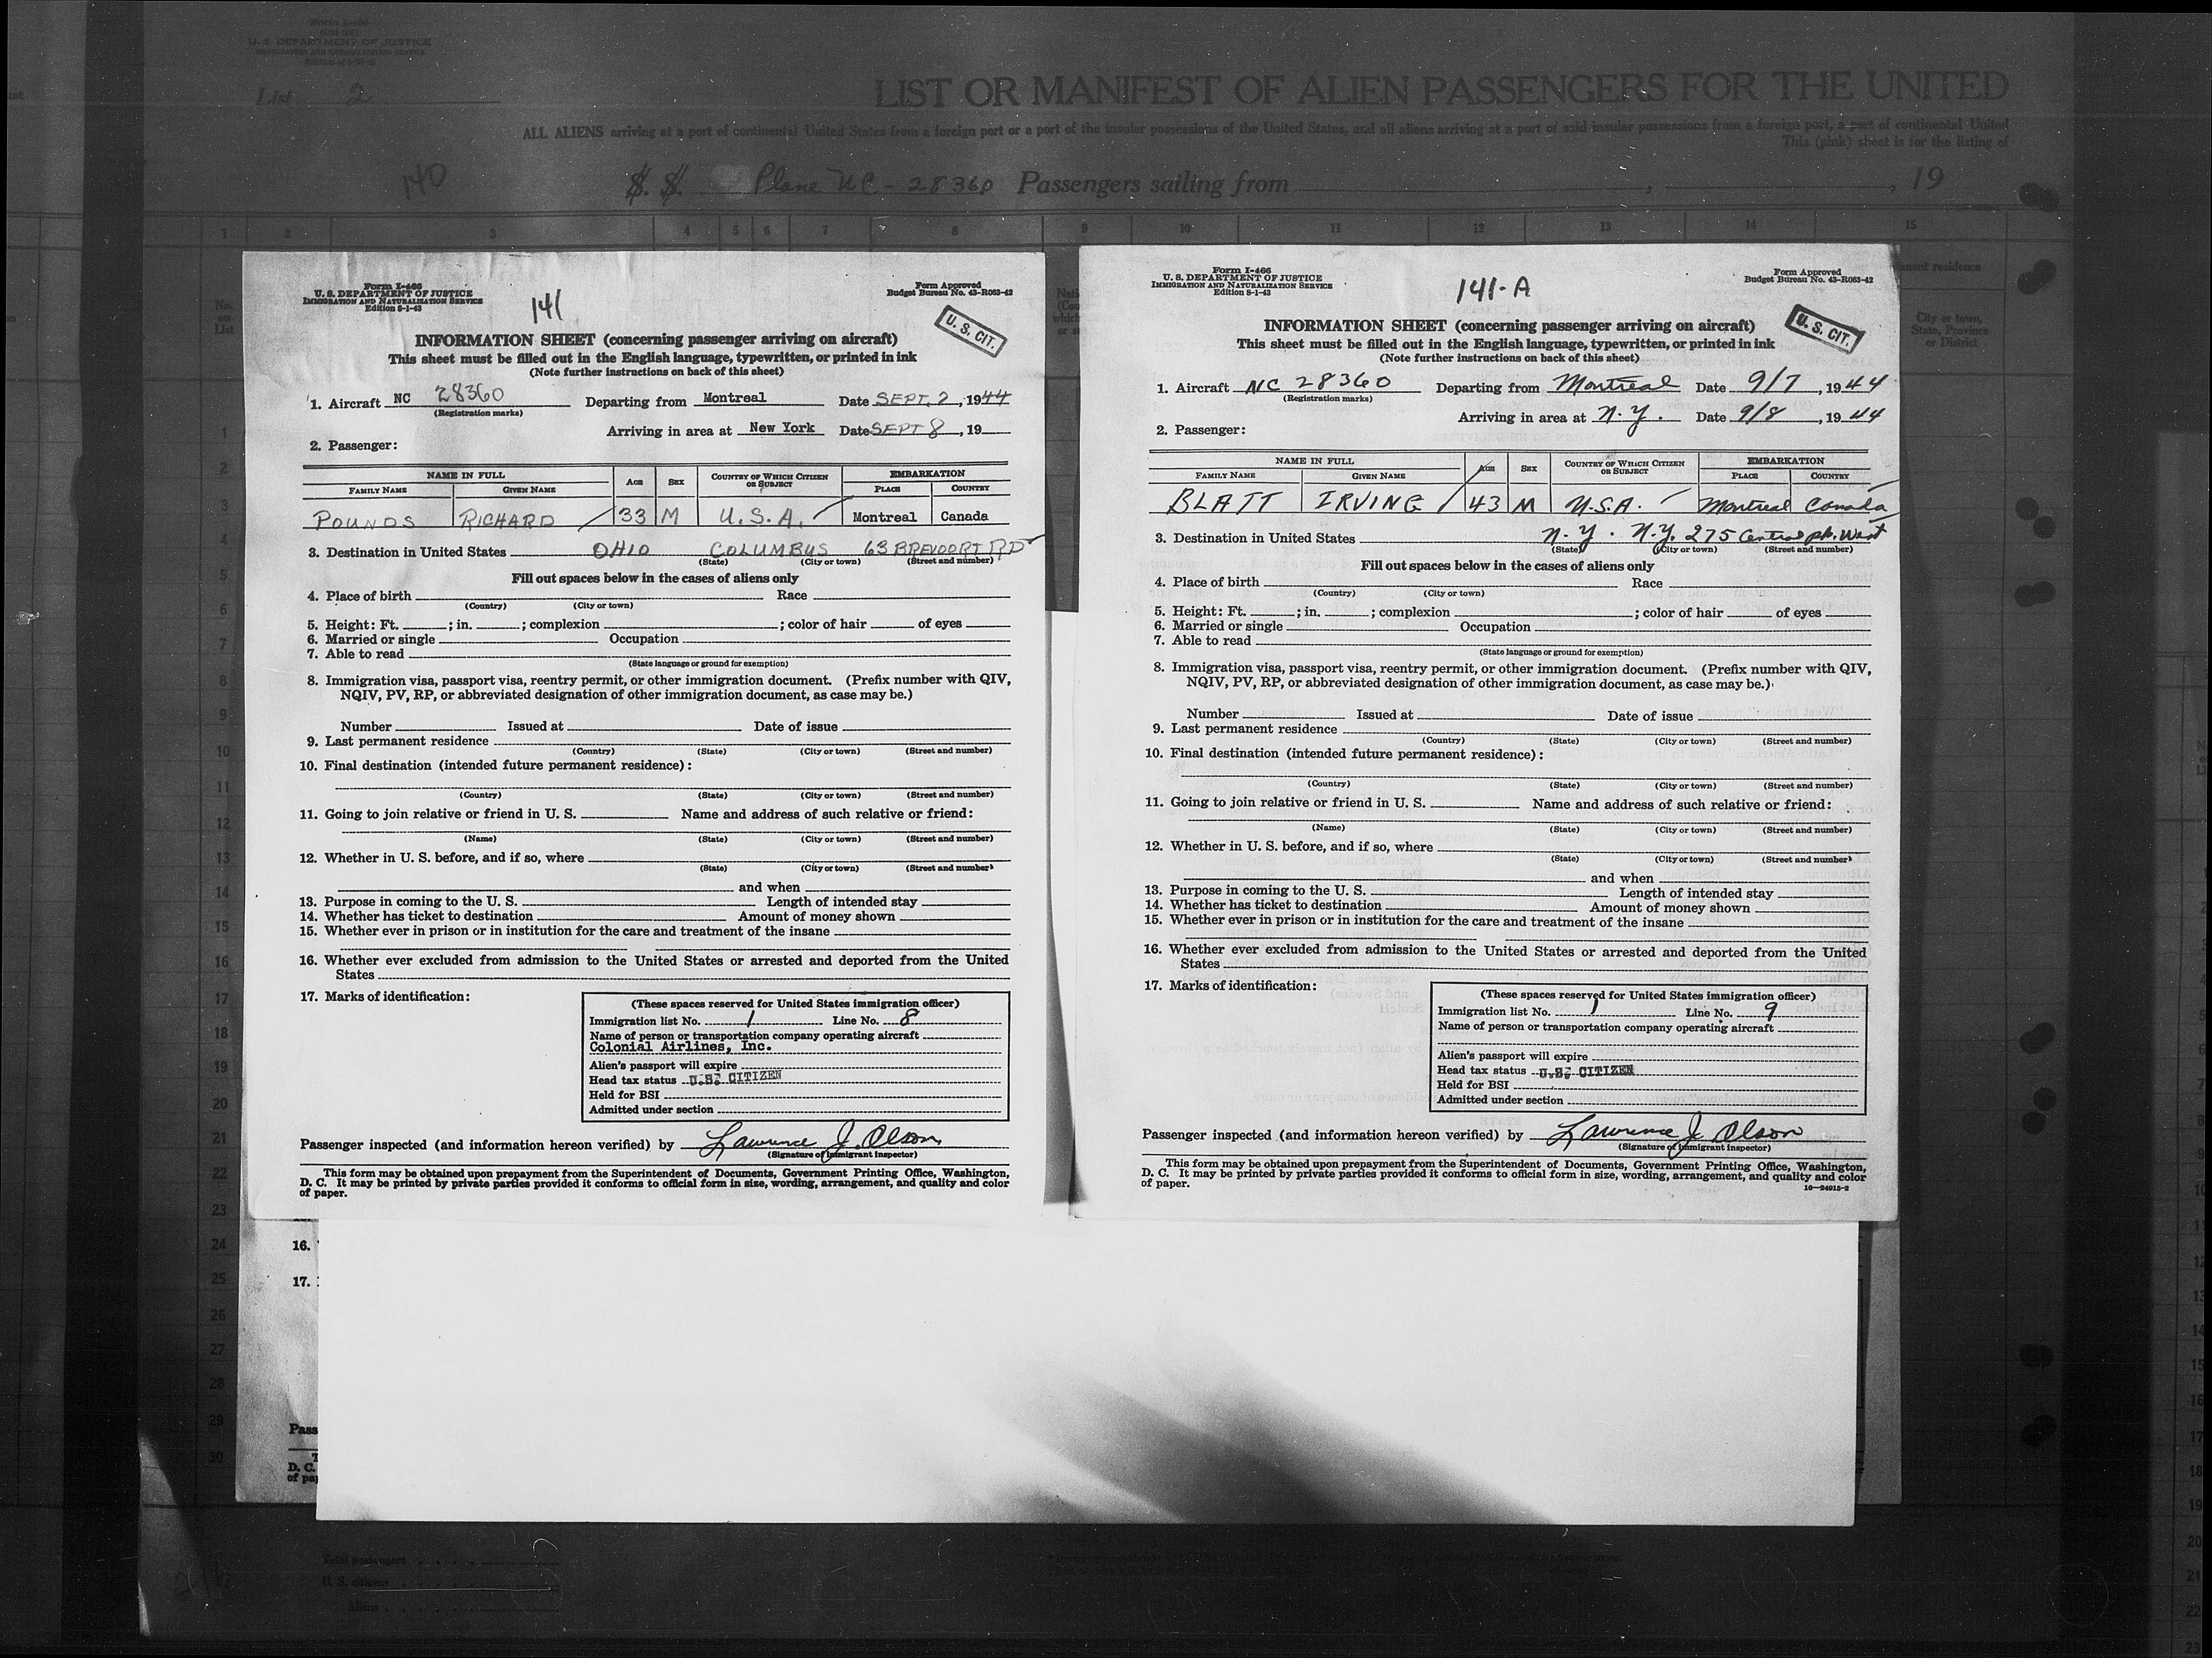 Form I-466
U. S. DEPARTMENT OF JUSTICE
IMMIGRATION AND NATURALIZATION SERVICE
List 2
LIST OR MANIFEST OF ALIEN PASSENGERS FOR THE UNITED
ALL ALIENS arriving at a port of continental United States from a foreign port or a port of the insular possessions of the United States, and all aliens arriving at a port of said insular possessions from a foreign port, a port of continental United
This (pink) sheet is for the listing of
140 S. S. Plane NC-28360 Passengers sailing from , , 19
1 2 3 4 5 6 7 8 9 10 11 12 13 14 15
No. on List
City or town, State, Province or District
Form I-466
U. S. DEPARTMENT OF JUSTICE
IMMIGRATION AND NATURALIZATION SERVICE
Edition 8-1-43
141
Form Approved
Budget Bureau No. 43-R063-42
U. S. CIT.
INFORMATION SHEET (concerning passenger arriving on aircraft)
This sheet must be filled out in the English language, typewritten, or printed in ink
(Note further instructions on back of this sheet)
1. Aircraft NC 28360 Departing from Montreal Date SEPT. 2, 1944
(Registration marks)
Arriving in area at New York Date SEPT 8, 19
2. Passenger:
NAME IN FULL AGE SEX COUNTRY OF WHICH CITIZEN OR SUBJECT EMBARKATION
FAMILY NAME GIVEN NAME PLACE COUNTRY
POUNDS RICHARD 33 M U. S. A. Montreal Canada
3. Destination in United States OHIO COLUMBUS 63 BREVOORT RD
(State) (City or town) (Street and number)
Fill out spaces below in the cases of aliens only
4. Place of birth Race
(Country) (City or town)
5. Height: Ft. ; in. ; complexion ; color of hair of eyes
6. Married or single Occupation
7. Able to read
(State language or ground for exemption)
8. Immigration visa, passport visa, reentry permit, or other immigration document. (Prefix number with QIV,
NQIV, PV, RP, or abbreviated designation of other immigration document, as case may be.)
Number Issued at Date of issue
9. Last permanent residence
(Country) (State) (City or town) (Street and number)
10. Final destination (intended future permanent residence):
(Country) (State) (City or town) (Street and number)
11. Going to join relative or friend in U. S. Name and address of such relative or friend:
(Name) (State) (City or town) (Street and number)
12. Whether in U. S. before, and if so, where
(State) (City or town) (Street and number)
and when
13. Purpose in coming to the U. S. Length of intended stay
14. Whether has ticket to destination Amount of money shown
15. Whether ever in prison or in institution for the care and treatment of the insane
16. Whether ever excluded from admission to the United States or arrested and deported from the United
States
17. Marks of identification:
(These spaces reserved for United States immigration officer)
Immigration list No. 1 Line No. 8
Name of person or transportation company operating aircraft
Colonial Airlines, Inc.
Alien's passport will expire
Head tax status U.S. CITIZEN
Held for BSI
Admitted under section
Passenger inspected (and information hereon verified) by Lawrence J. Olson
(Signature of immigrant inspector)
This form may be obtained upon prepayment from the Superintendent of Documents, Government Printing Office, Washington,
D. C. It may be printed by private parties provided it conforms to official form in size, wording, arrangement, and quality and color
of paper.
Form I-466
U. S. DEPARTMENT OF JUSTICE
IMMIGRATION AND NATURALIZATION SERVICE
Edition 8-1-43
141-A
Form Approved
Budget Bureau No. 43-R063-42
U. S. CIT.
INFORMATION SHEET (concerning passenger arriving on aircraft)
This sheet must be filled out in the English language, typewritten, or printed in ink
(Note further instructions on back of this sheet)
1. Aircraft NC 28360 Departing from Montreal Date 9/7, 1944
(Registration marks)
Arriving in area at N.Y. Date 9/8, 1944
2. Passenger:
NAME IN FULL AGE SEX COUNTRY OF WHICH CITIZEN OR SUBJECT EMBARKATION
FAMILY NAME GIVEN NAME PLACE COUNTRY
BLATT IRVING 43 M U.S.A. Montreal Canada
3. Destination in United States N.Y. N.Y. 275 Central pk. West
(State) (City or town) (Street and number)
Fill out spaces below in the cases of aliens only
4. Place of birth Race
(Country) (City or town)
5. Height: Ft. ; in. ; complexion ; color of hair of eyes
6. Married or single Occupation
7. Able to read
(State language or ground for exemption)
8. Immigration visa, passport visa, reentry permit, or other immigration document. (Prefix number with QIV,
NQIV, PV, RP, or abbreviated designation of other immigration document, as case may be.)
Number Issued at Date of issue
9. Last permanent residence
(Country) (State) (City or town) (Street and number)
10. Final destination (intended future permanent residence):
(Country) (State) (City or town) (Street and number)
11. Going to join relative or friend in U. S. Name and address of such relative or friend:
(Name) (State) (City or town) (Street and number)
12. Whether in U. S. before, and if so, where
(State) (City or town) (Street and number)
and when
13. Purpose in coming to the U. S. Length of intended stay
14. Whether has ticket to destination Amount of money shown
15. Whether ever in prison or in institution for the care and treatment of the insane
16. Whether ever excluded from admission to the United States or arrested and deported from the United
States
17. Marks of identification:
(These spaces reserved for United States immigration officer)
Immigration list No. 1 Line No. 9
Name of person or transportation company operating aircraft
Alien's passport will expire
Head tax status U.S. CITIZEN
Held for BSI
Admitted under section
Passenger inspected (and information hereon verified) by Lawrence J. Olson
(Signature of immigrant inspector)
This form may be obtained upon prepayment from the Superintendent of Documents, Government Printing Office, Washington,
D. C. It may be printed by private parties provided it conforms to official form in size, wording, arrangement, and quality and color
of paper.
16—24915-2
16.
17.
Pass
D. C.
of pa
Total passengers
U. S. citizens
Aliens